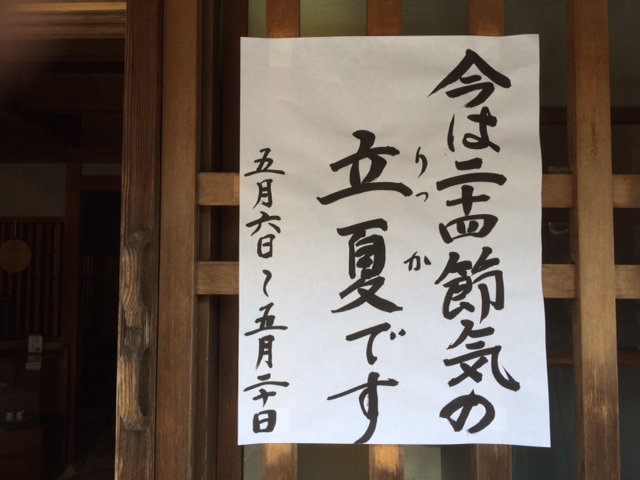 今は二十四節気の
りっか
立夏です
五月六日～五月二十日